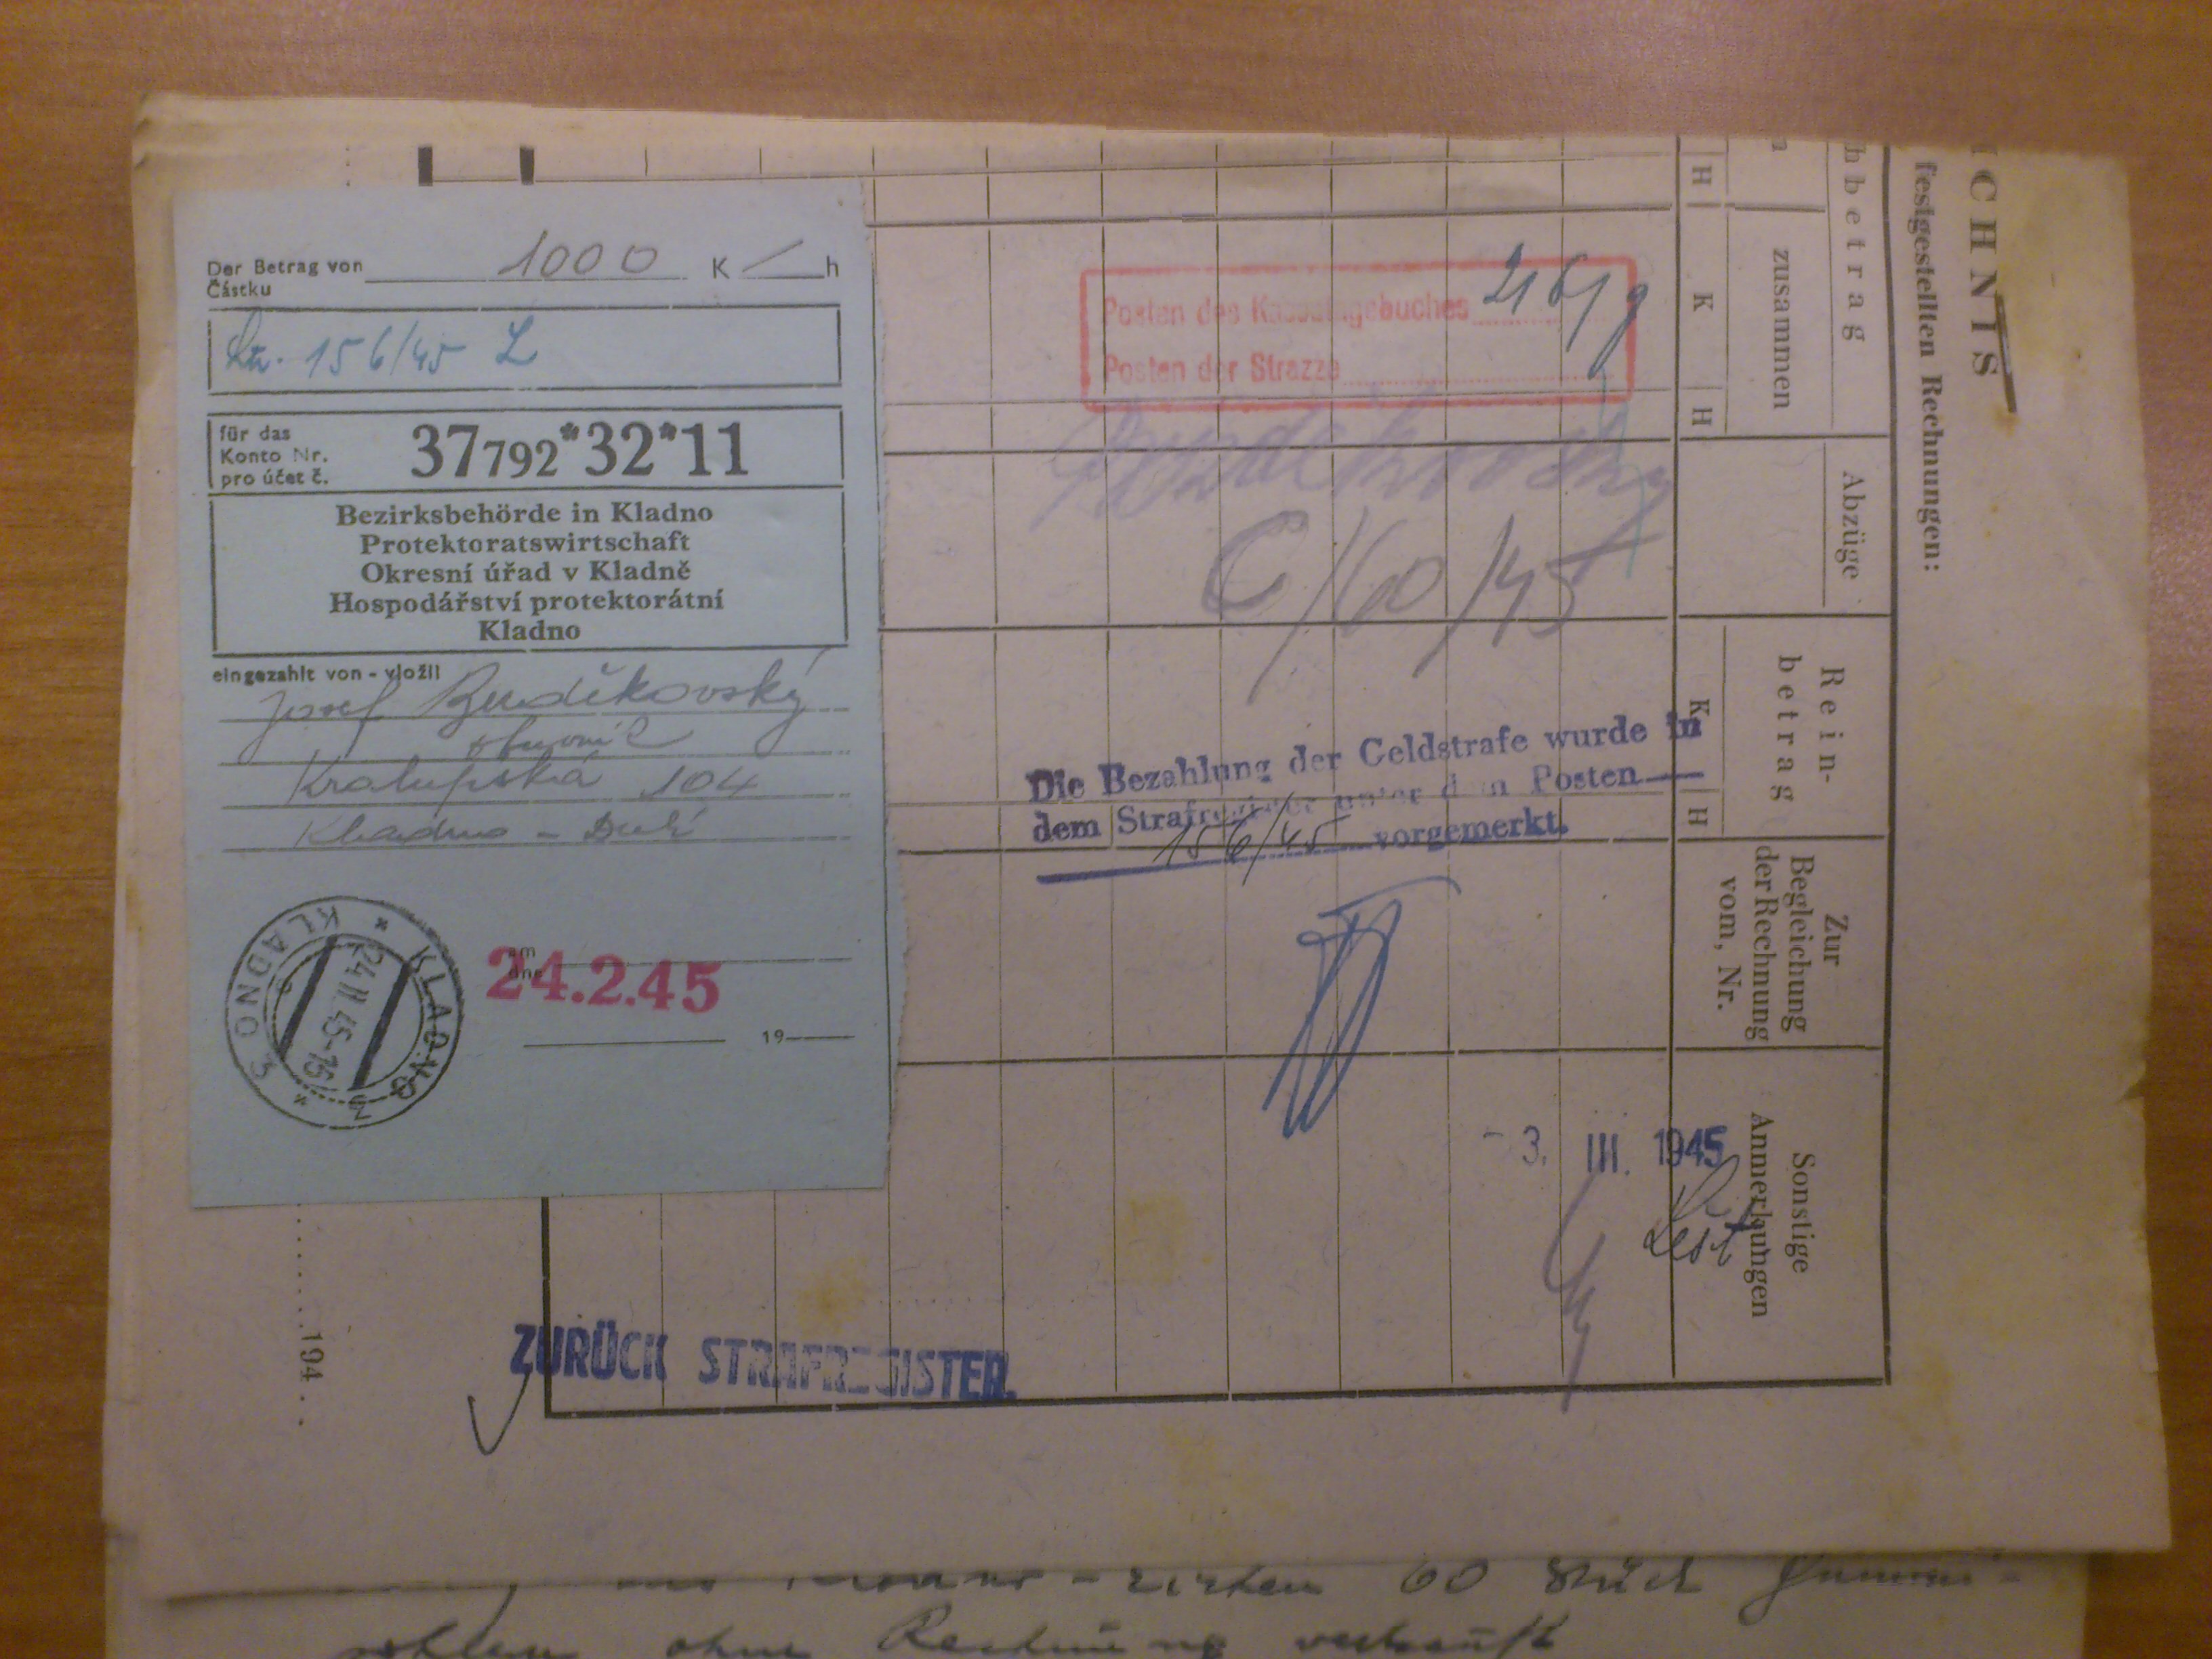 Der Betrag von 1000 K — h
Částku
156/45
für das
Konto Nr. 37792*32*11
pro účet č.
Bezirksbehörde in Kladno
Protektoratswirtschaft
Okresní úřad v Kladně
Hospodářství protektorátní
Kladno
eingezahlt von - vložil
Josef Buděkovský
obuvník
Kralupská 104
Kladno - Dubí
KLADNO 3
KLADNO
24 II 45-16
am
dne
24.2.45
19
Posten des Kassatagebuches
Posten der Strazze
C/60/45
Die Bezahlung der Geldstrafe wurde in
dem Strafregister unter dem Posten
156/45 vorgemerkt.
- 3. III. 1945
ZURÜCK STRAFREGISTER.
194
ICHNIS
festgestellten Rechnungen:
hbetrag
n
zusammen
H
K
H
Abzüge
Rein-
betrag
K
H
Zur
Begleichung
der Rechnung
vom, Nr.
Sonstige
Anmerkungen
60 Stück Gummi-
sohlen ohne Rechnung verkauft